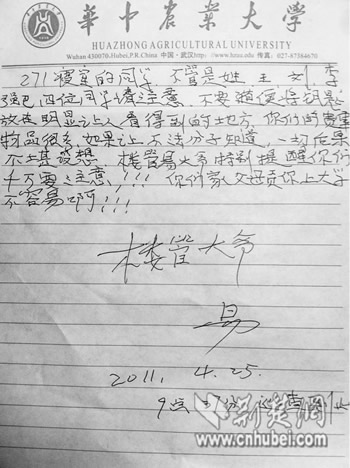 華中农业大学
HUAZHONG AGRICULTURAL UNIVERSITY
Wuhan 430070, Hubei, P.R. China 中国·武汉 http://www.hzau.edu.cn 027-87384670
271寝室的同学 不管是姓 王 刘 李
四位同学请注意、不要随便将钥匙
放在明显让人看得到的地方,你们的贵重
物品很多,如果让不法分子知道,一切后果
不堪设想,楼管易大爷特别提醒你们
千万要注意!!! 你们家父母贡你上大学
不容易啊!!!
楼管大爷
易
2011. 4.25.
9点 37分
新楚网
www.cnhubei.com